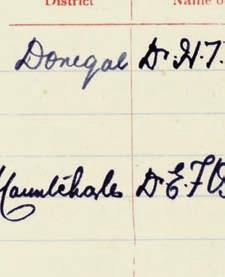 District Name o
Donegal Dr. H.T.
Mountcharles Dr. E. F. O